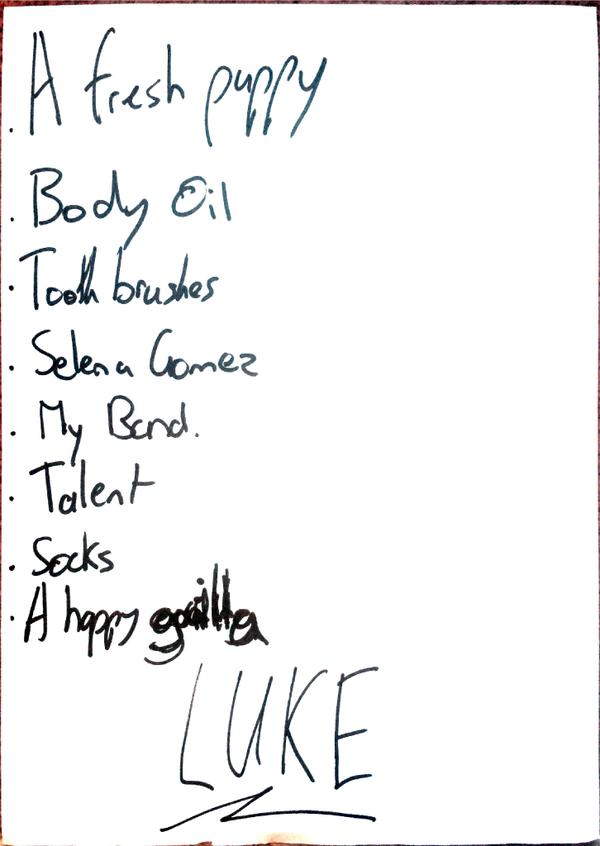 A fresh puppy
Body Oil
Tooth brushes
Selena Gomez
My Band.
Talent
Socks
A happy gorilla
LUKE